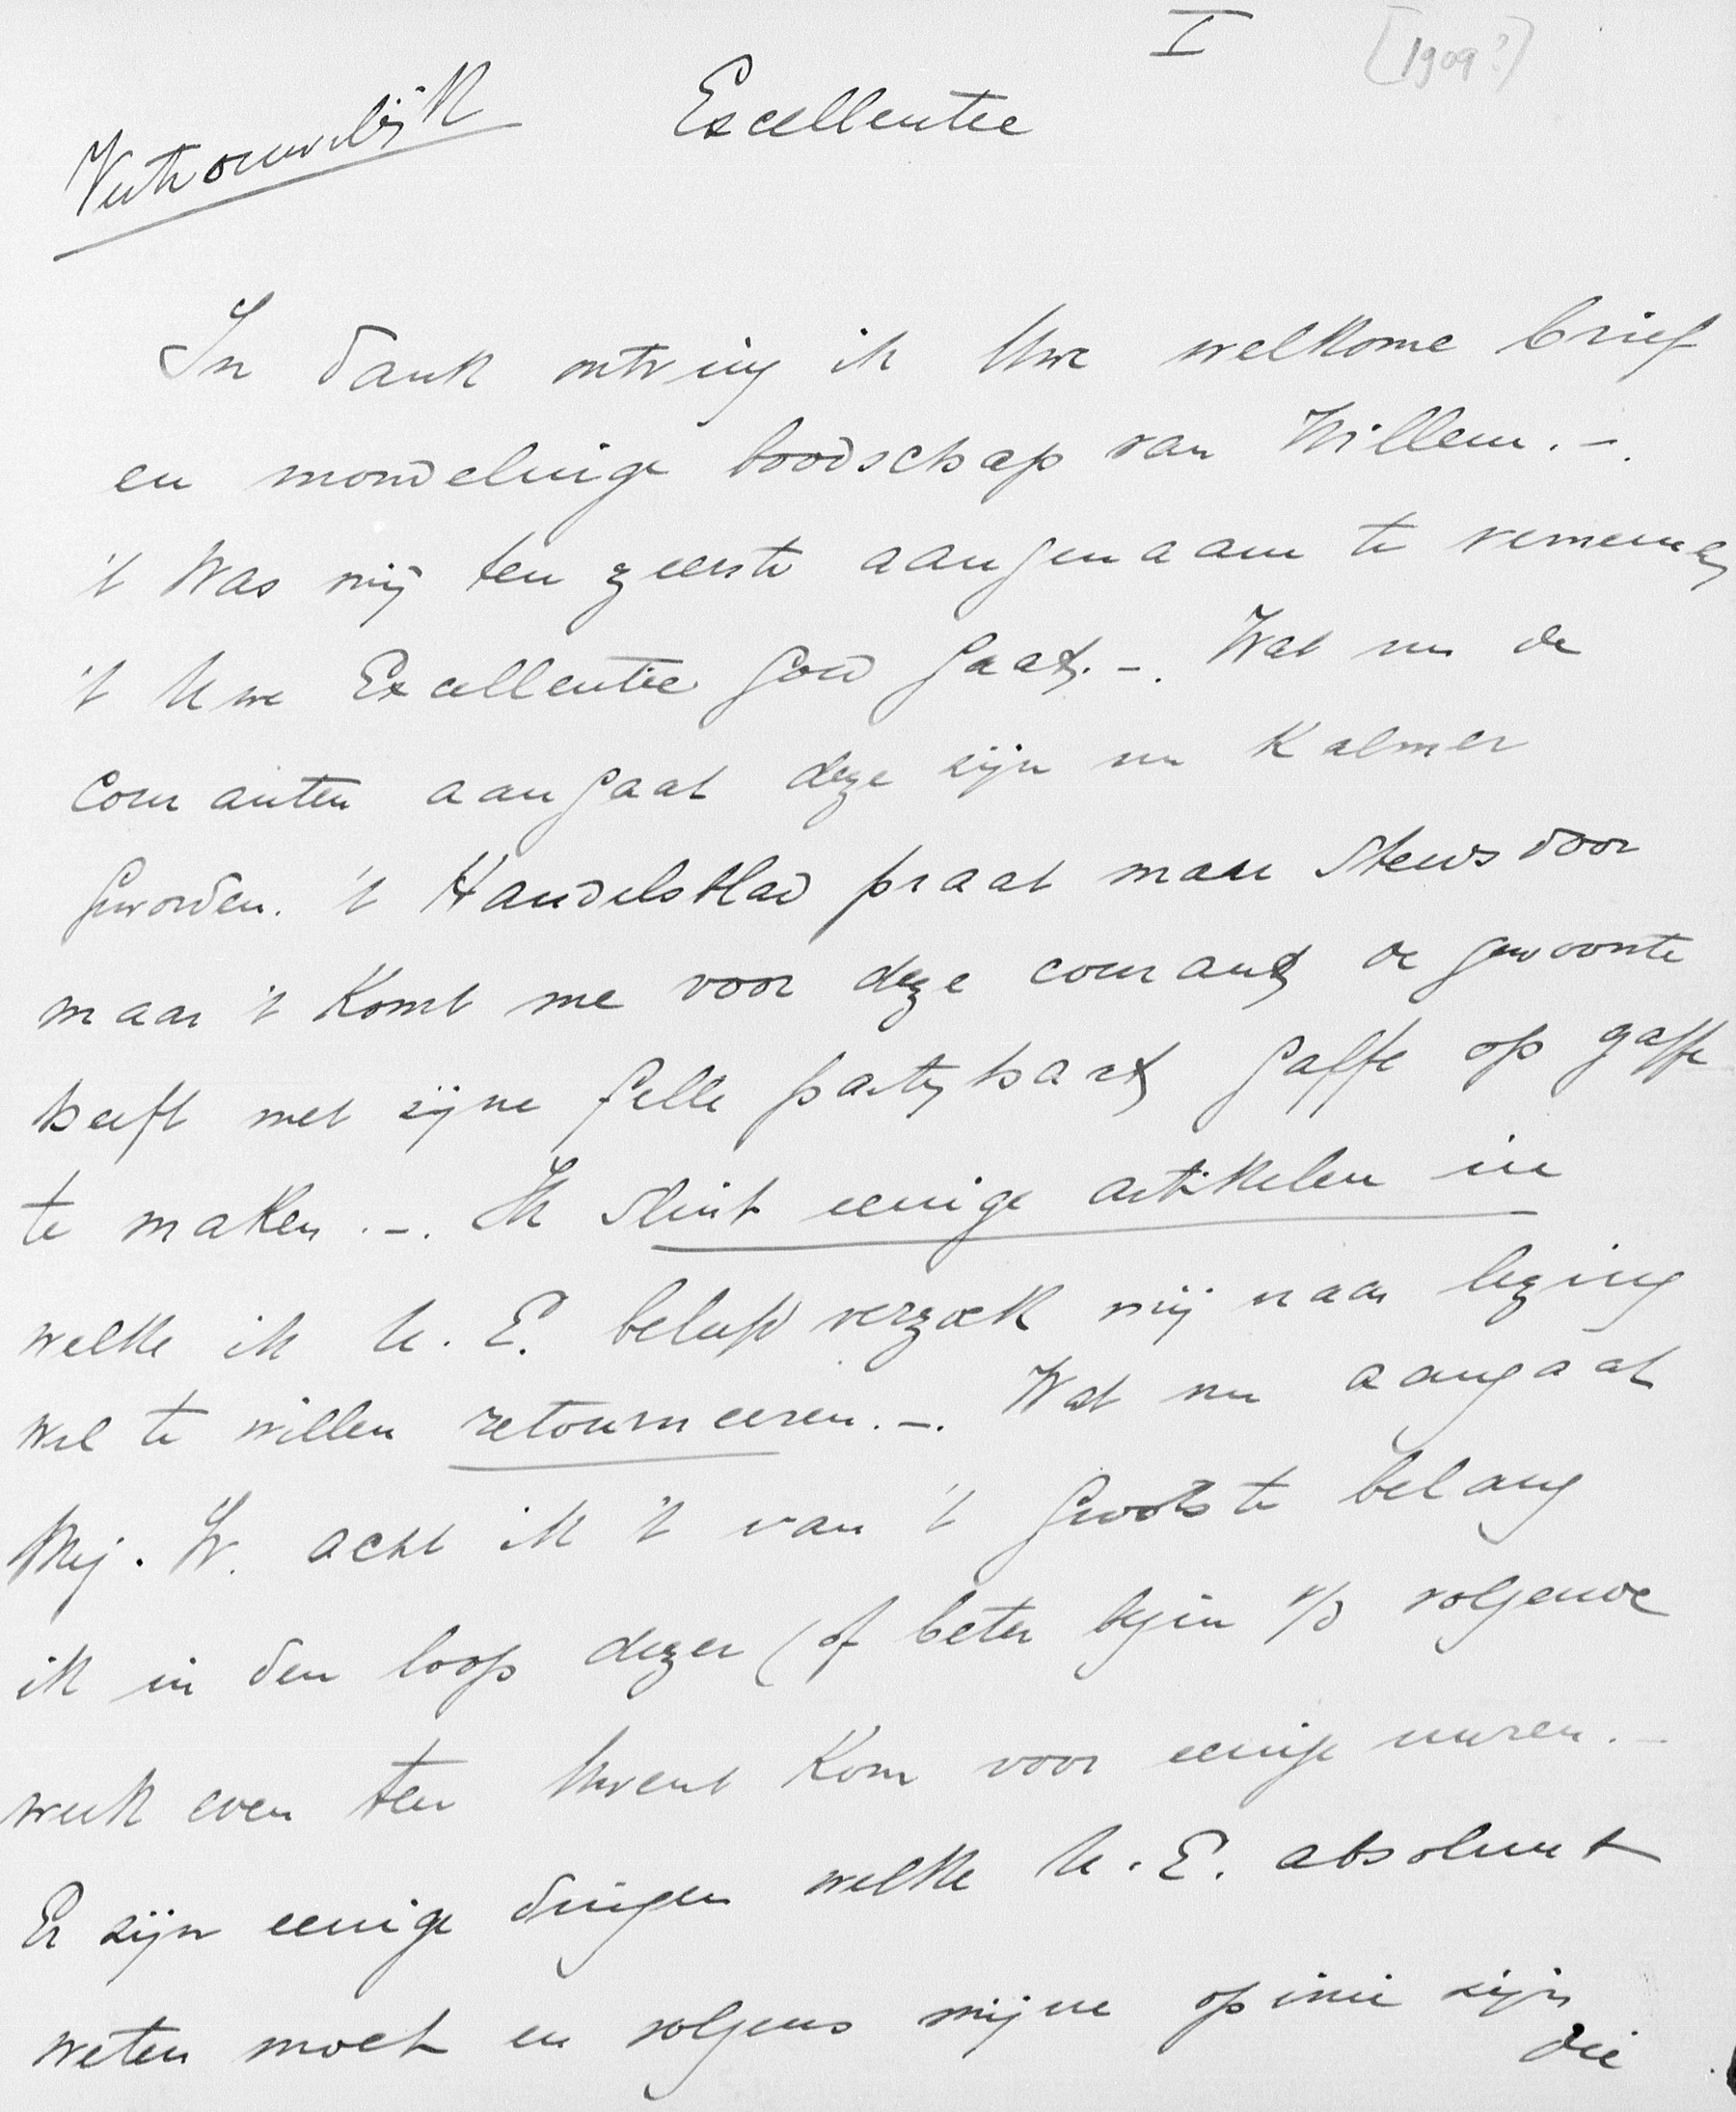 I [1909?]
Vertrouwelijk Excellentie
In dank ontving ik Uwe welkome brief
en mondelinge boodschap van Willem. -.
't Was mij ten zeerste aangenaam te vernemen
't Uwe Excellentie goed gaat. -. Wat nu de
couranten aangaat deze zijn nu Kalmer
geworden. 't Handelsblad praat maar steeds door
maar 't Komt me voor deze courant de gewoonte
heeft met zijne felle partyhart gaffe op gaffe
te maken. -. Ik sluit eenige artikelen in
welke ik U. E. beleefd verzoek mij naar lezing
wel te willen retourneeren. -. Wat nu aangaat
Mej. W. acht ik 't van 't grootste belang
ik in den loop dezer (of beter begin v/d volgende
week even ten Uwent Kom voor eenige uuren. -
Er zijn eenige dingen welke U. E. absoluut
weten moet en volgens mijne opinie zijn
die